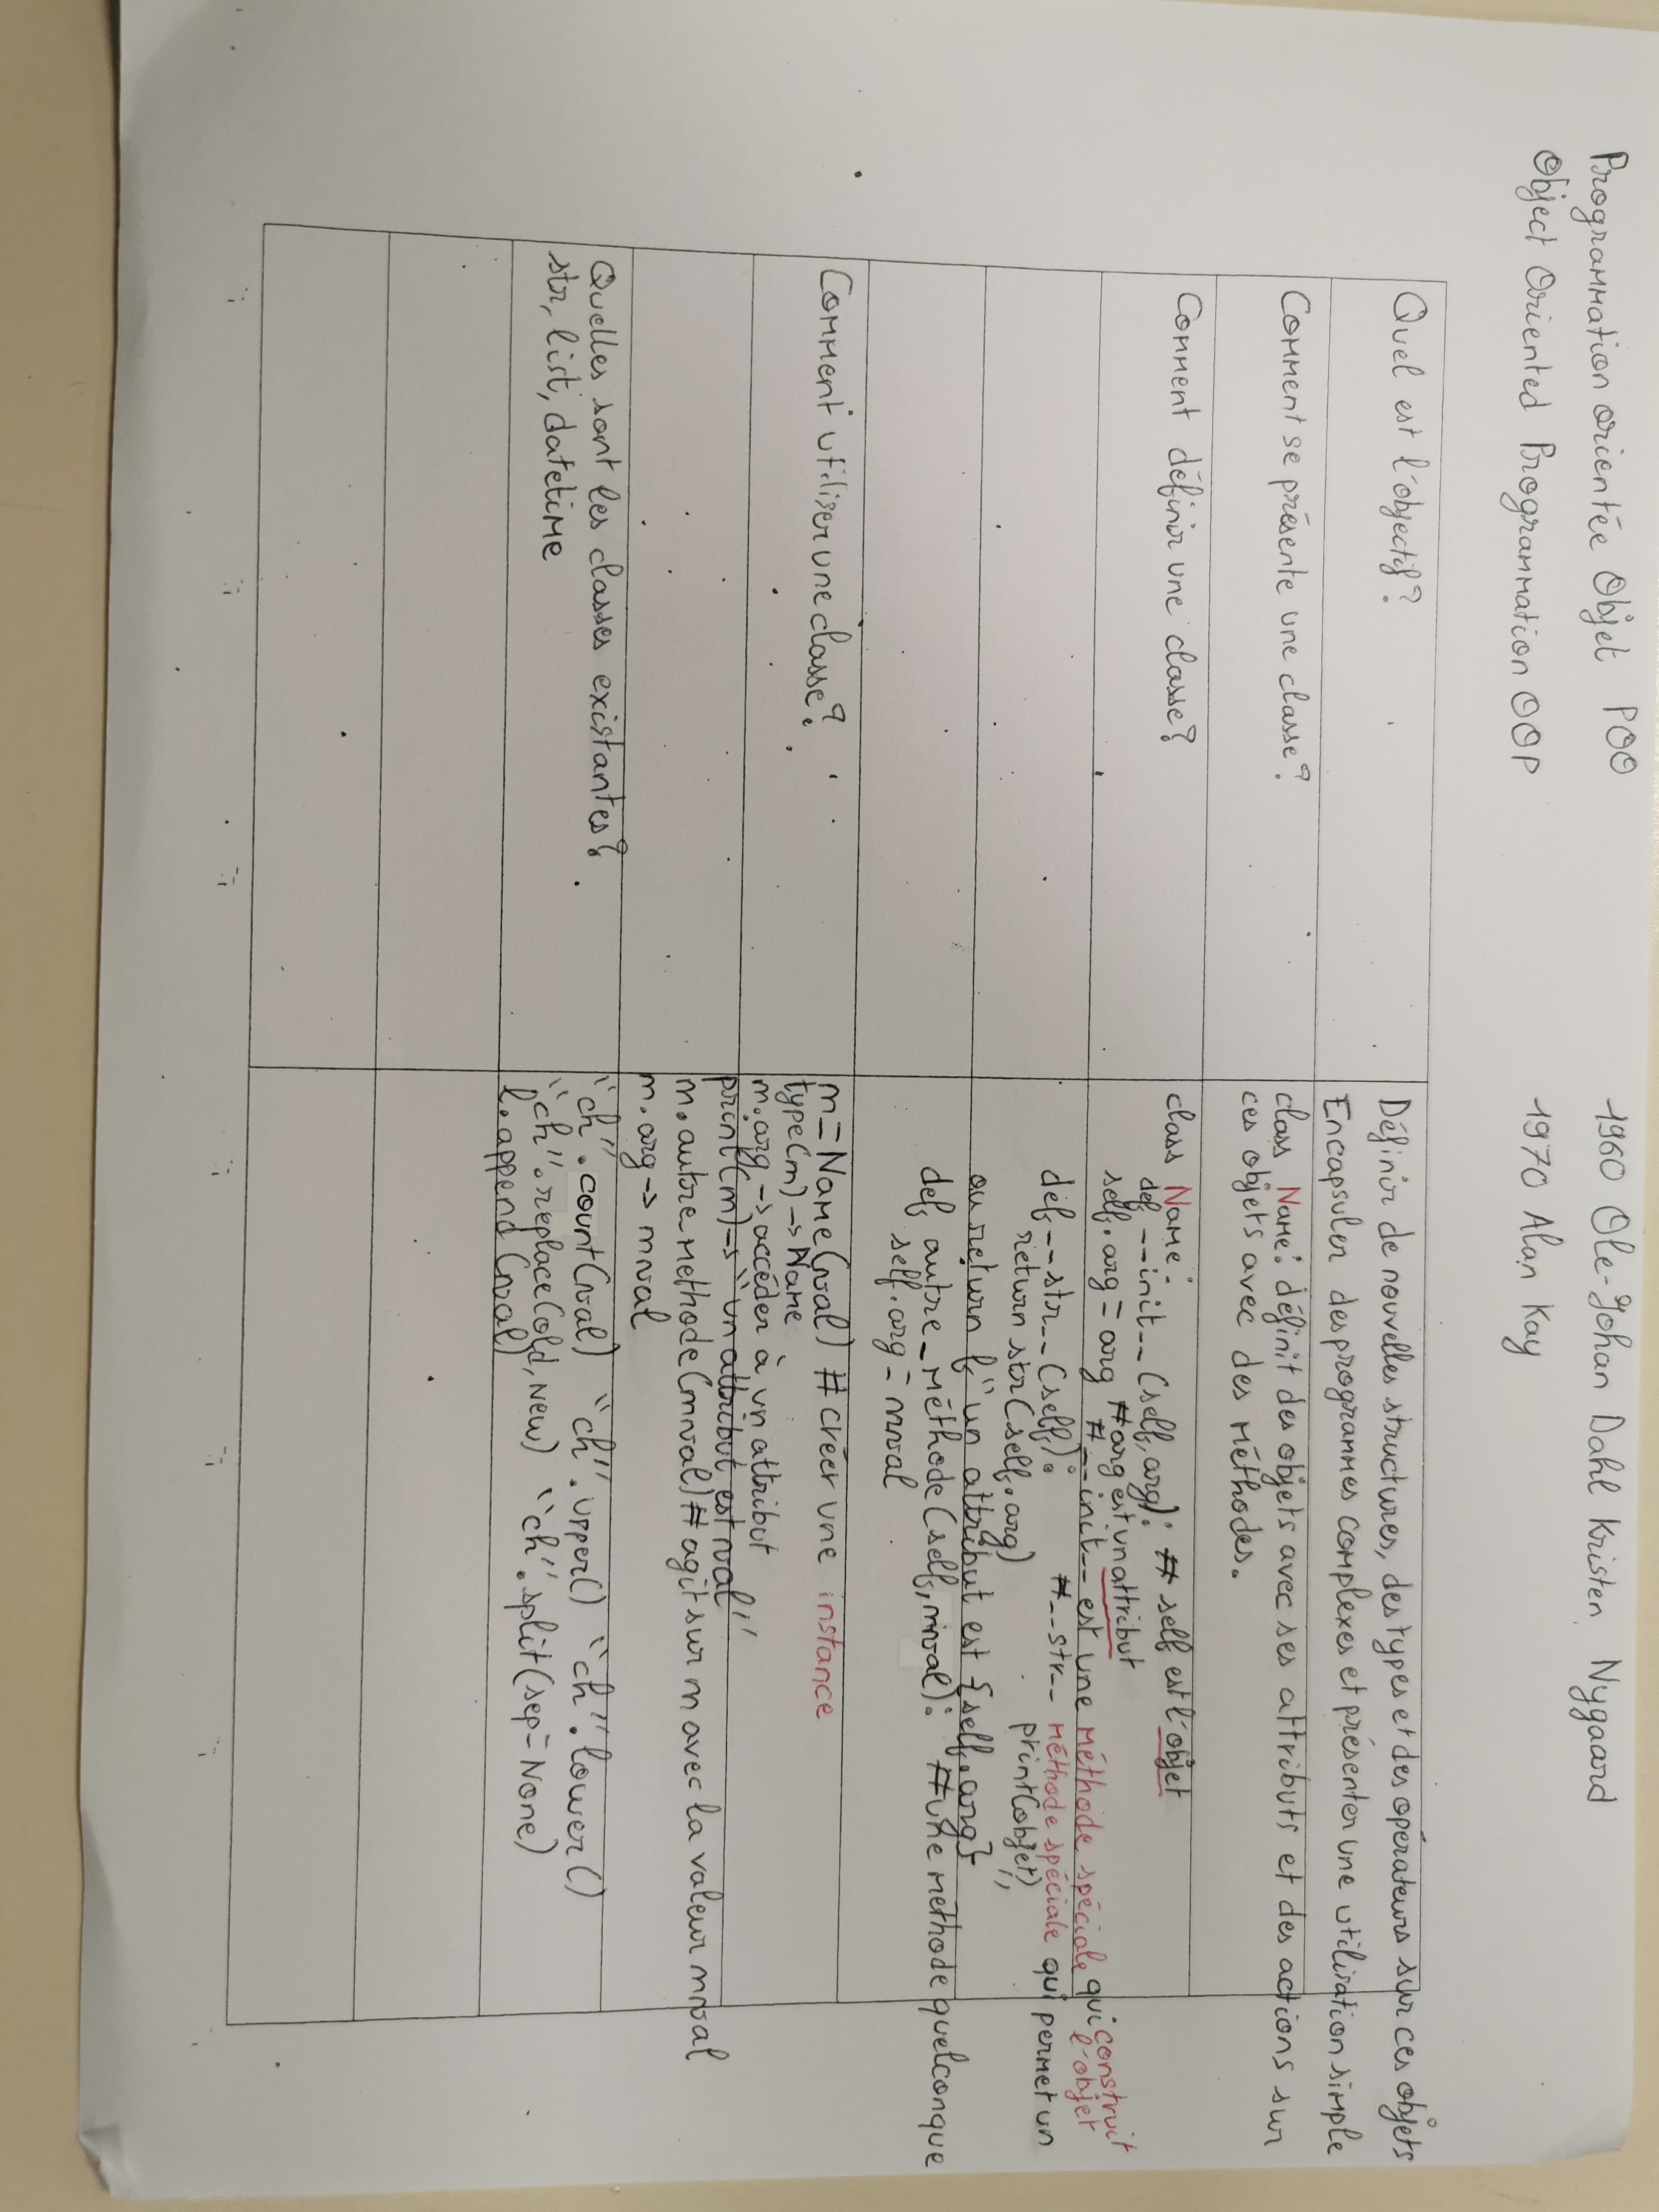 Programmation orientée Objet POO
1960 Ole-Johan Dahl Kristen Nygaard
Object Oriented Programmation OOP
1970 Alan Kay
Quel est l'objectif?
Définir de nouvelles structures, des types et des opérateurs sur ces objets
Encapsuler des programmes complexes et présenter une utilisation simple
Comment se présente une classe?
class Name: définit des objets avec ses attributs et des actions sur
ces objets avec des méthodes.
Comment définir une classe?
class Name:
def __init__(self, arg): # self est l'objet
self.arg = arg # arg est un attribut
# __init__ est une méthode spéciale qui construit
l'objet
def __str__(self): #__str__ méthode spéciale qui permet un
return str(self.arg) print(objet)
ou return f"un attribut est {self.arg}"
def autre_méthode(self, nval): #une méthode quelconque
self.arg = nval
Comment utiliser une classe?
n = Name(val) # créer une instance
type(n) -> Name
n.arg -> accéder à un attribut
print(n) -> "un attribut est val"
n.autremethode(nval) # agit sur n avec la valeur nval
n.arg -> nval
Quelles sont les classes existantes?
str, list, datetime
"ch".count(val) "ch".upper() "ch".lower()
"ch".replace(old, new) "ch".split(sep=None)
l.append(val)